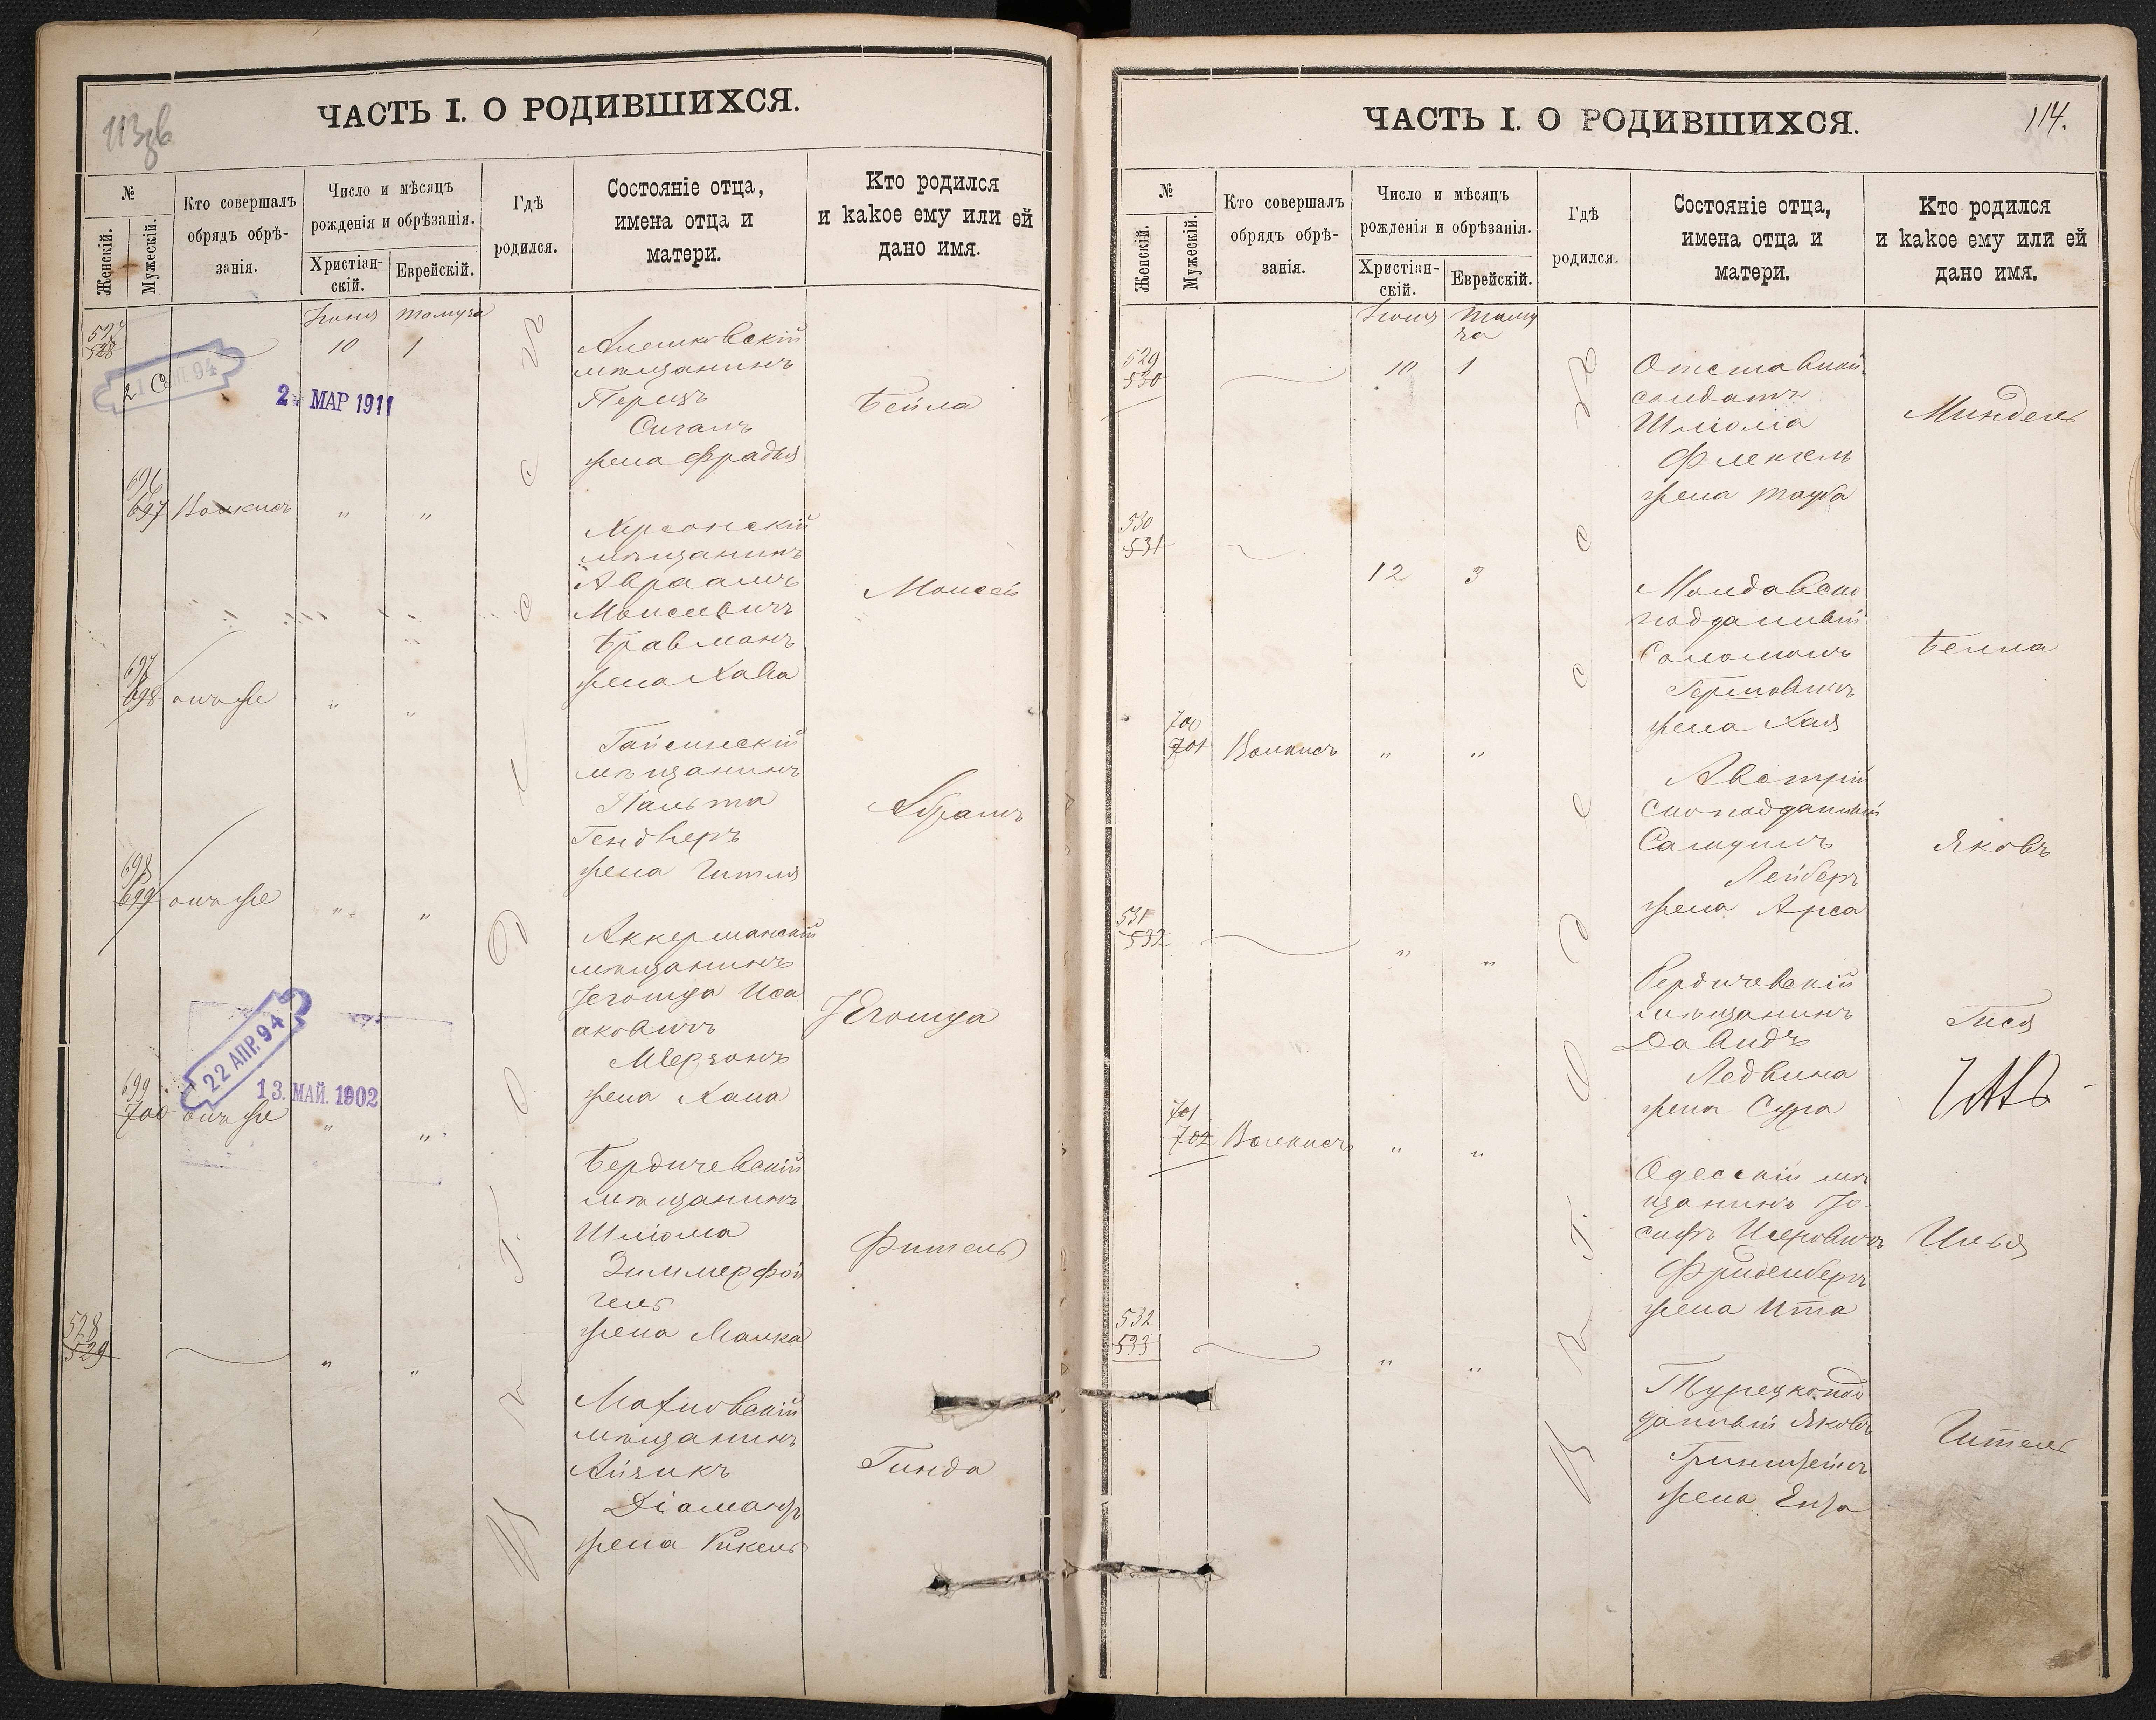 113 об
ЧАСТЬ I. О РОДИВШИХСЯ.
№
Женскій.
Мужескій.
Кто совершалъ
обрядъ обрѣ-
занія.
Число и мѣсяцъ
рожденія и обрѣзанія.
Христіан-
скій.
Еврейскій.
Гдѣ
родился.
Состояніе отца,
имена отца и
матери.
Кто родился
и какое ему или ей
дано имя.
Іюня Тамуза
528
10 1
21 СЕН. 94
2 МАР 1911
Алешковскій
мѣщанинъ
Перецъ
Сигалъ
жена Фрадля
Бейла
696
697 Волкисъ " "
Херсонскій
мѣщанинъ
Авраамъ
Моисеевичъ
Бравманъ
жена Хава
Моисей
697
698 онъ же " "
Гайсинскій
мѣщанинъ
Пальта
Гендлеръ
жена Гитля
Абрамъ
698
699 онъ же " "
Аккерманскій
мѣщанинъ
Іегошуа Иса
аковичъ
жена Хана
Іегошуа
22 АПР. 94
13. МАЙ. 1902
699
700 онъ же " "
Бердичевскій
мѣщанинъ
Шліома
Зиммерфой
гель
жена Малка
Фишель
528
529 " "
Махновскій
мѣщанинъ
Айзикъ
Діамантъ
жена Рикель
Гинда
114.
ЧАСТЬ I. О РОДИВШИХСЯ.
№
Женскій.
Мужескій.
Кто совершалъ
обрядъ обрѣ-
занія.
Число и мѣсяцъ
рожденія и обрѣзанія.
Христіан-
скій.
Еврейскій.
Гдѣ
родился.
Состояніе отца,
имена отца и
матери.
Кто родился
и какое ему или ей
дано имя.
Іюня Таму
за
529
530 10 1
Отставной
солдатъ
Шліома
Френкель
жена Тауба
Миндель
530
531
12 3
Молдавско
подданный
Соломонъ
Гершовичъ
жена Хая
Бейла
700
701 Волкисъ " "
Австрій
скоподданный
Самуилъ
Лейберъ
жена
Яковъ
531
532 " "
Бердичевскій
мѣщанинъ
Давидъ
Ледвина
жена Сура
Гися
701
702 Волкисъ " "
Одесскій мѣ
щанинъ Іо-
сифъ
Фриденбергъ
жена Ита
Илья
532
533 " "
Турецкопод
данный Яковъ
Гринштейнъ
жена Ента
Гитель